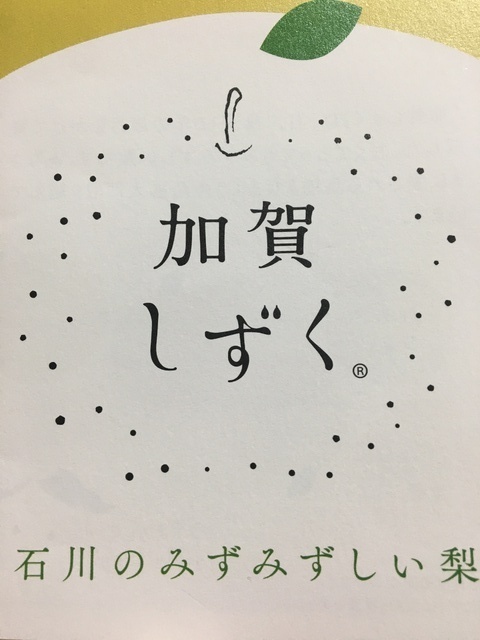 加賀
しずく®
石川のみずみずしい梨